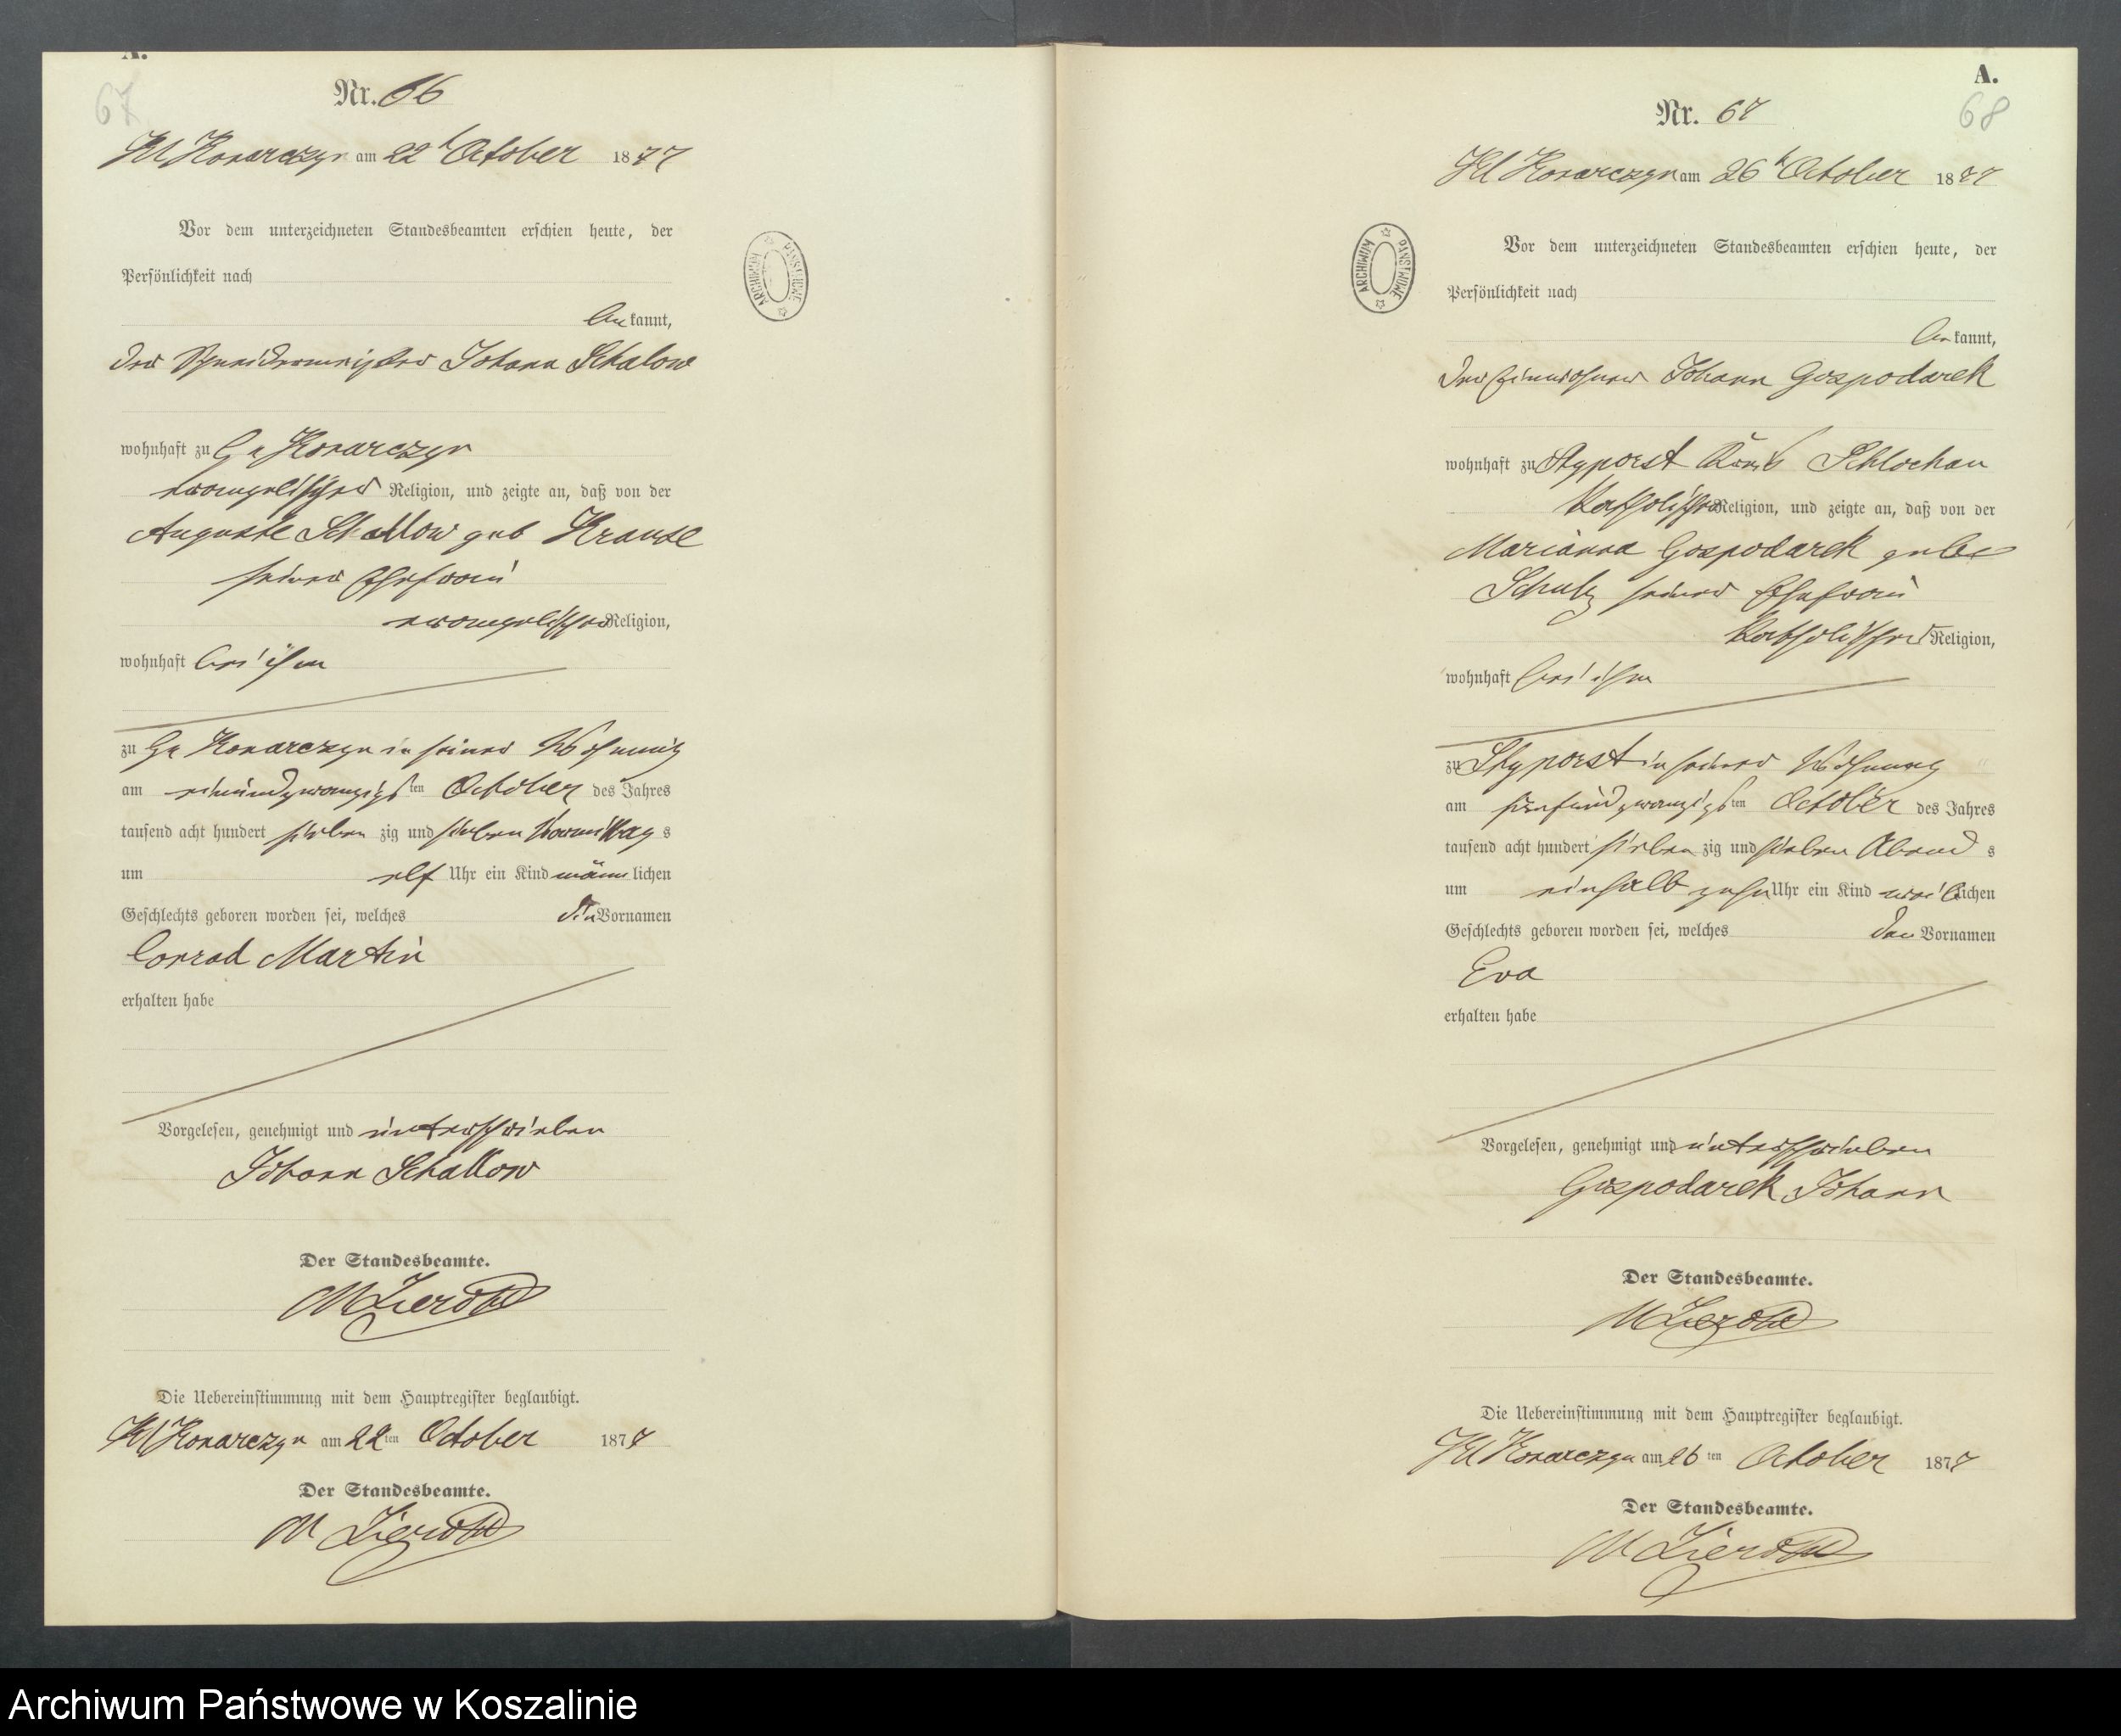 A.
67
Nr. 66
Kl Konarczyn am 22 t October 1877
Vor dem unterzeichneten Standesbeamten erschien heute, der
Persönlichkeit nach
bekannt,
der Schneidermeister Johann Schalow
wohnhaft zu Gr Konarczyn
evangelischer Religion, und zeigte an, daß von der
Auguste Schallow geb Krause
seiner Ehefrau
evangelischer Religion,
wohnhaft bei ihm
zu Gr Konarczyn in seiner Wohnung
am einundzwanzigsten October des Jahres
tausend acht hundert sieben zig und sieben Vormittag s
um elf Uhr ein Kind männlichen
Geschlechts geboren worden sei, welches die Vornamen
Conrad Martin
erhalten habe
Vorgelesen, genehmigt und unterschrieben
Johann Schallow
Der Standesbeamte.
Die Uebereinstimmung mit dem Hauptregister beglaubigt.
Kl Konarczyn am 22 ten October 1877
Der Standesbeamte.
ARCHIWUM PAŃSTWOWE
A.
68
Nr. 67
Kl Konarczyn am 26 t October 1877
Vor dem unterzeichneten Standesbeamten erschien heute, der
Persönlichkeit nach
bekannt,
der Einwohner Johann Gospodarek
wohnhaft zu Stgporst Kreis Schlochau
katholischer Religion, und zeigte an, daß von der
Marianna Gospodarek geb
Schulz seiner Ehefrau
katholischer Religion,
wohnhaft bei ihm
zu Stgporst in seiner Wohnung
am fünfundzwanzigsten October des Jahres
tausend acht hundert sieben zig und sieben Abend s
um einhalb zehn Uhr ein Kind weiblichen
Geschlechts geboren worden sei, welches den Vornamen
Eva
erhalten habe
Vorgelesen, genehmigt und unterschrieben
Gospodarek Johann
Der Standesbeamte.
Die Uebereinstimmung mit dem Hauptregister beglaubigt.
Kl Konarczyn am 26 ten October 1877
Der Standesbeamte.
ARCHIWUM PAŃSTWOWE
Archiwum Państwowe w Koszalinie